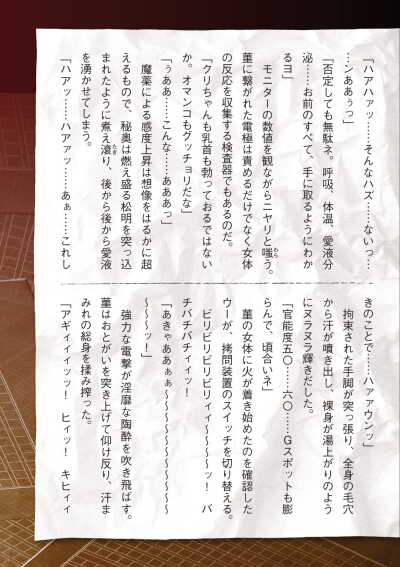 「ハアハアッ……そんなハズ……ないっ…
…ンああぅっ」
「否定しても無駄ネ。呼吸、体温、愛液分
泌……お前のすべて、手に取るようにわか
るヨ」
　モニターの数値を観ながらニヤリと嗤う。
菫に繋がれた電極は責めるだけでなく女体
の反応を収集する検査器でもあるのだ。
「クリちゃんも乳首も勃っておるではない
か。オマンコもグッチョリだな」
「ううああ……こんな……あああっ」
　魔薬による感度上昇は想像をはるかに超
えるもので、秘奥は燃え盛る松明を突っ込
まれたように煮え滾り、後から後から愛液
を湧かせてしまう。
「ハアッ……ハアアッ……あぁ……これし
きのことで……ハァアウンッ」
　拘束された手脚が突っ張り、全身の毛穴
から汗が噴き出し、裸身が湯上がりのよう
にヌラヌラ輝きだした。
「官能度五〇……六〇……Ｇスポットも膨
らんで、頃合いネ」
　菫の女体に火が着き始めたのを確認した
ウーが、拷問装置のスイッチを切り替える。
　ビリビリビリビリィィ〜〜〜〜ッ！　バ
チバチバチィィッ！
「あきゃああぁぁ〜〜〜〜〜〜〜〜〜〜〜
〜〜〜ッ！」
　強力な電撃が淫靡な陶酔を吹き飛ばす。
菫はおとがいを突き上げて仰け反り、汗ま
みれの総身を揉み搾った。
「アギィィィッッ！　ヒィッ！　キヒィィ